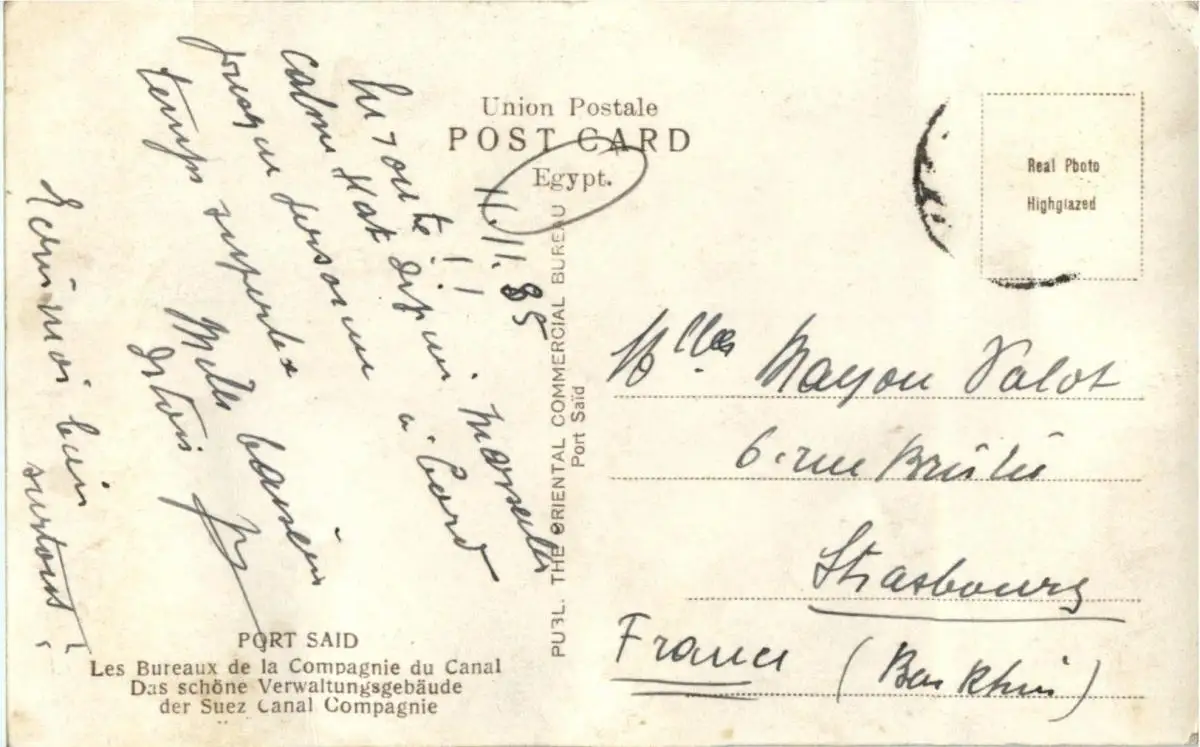 Union Postale
POST CARD
Egypt.
11.11.35
En route!!
Calme plat depuis Marseille
presque personne à bord
temps superbe
Milles baisers
d'Istois
Ecris moi bien
surtout!
Real Photo
Highglazed
Mlles Mayou Valot
6. rue Brûlée
Strasbourg
France (Bas Rhin)
PUBL. THE ORIENTAL COMMERCIAL BUREAU
Port Saïd
PORT SAID
Les Bureaux de la Compagnie du Canal
Das schöne Verwaltungsgebäude
der Suez Canal Compagnie